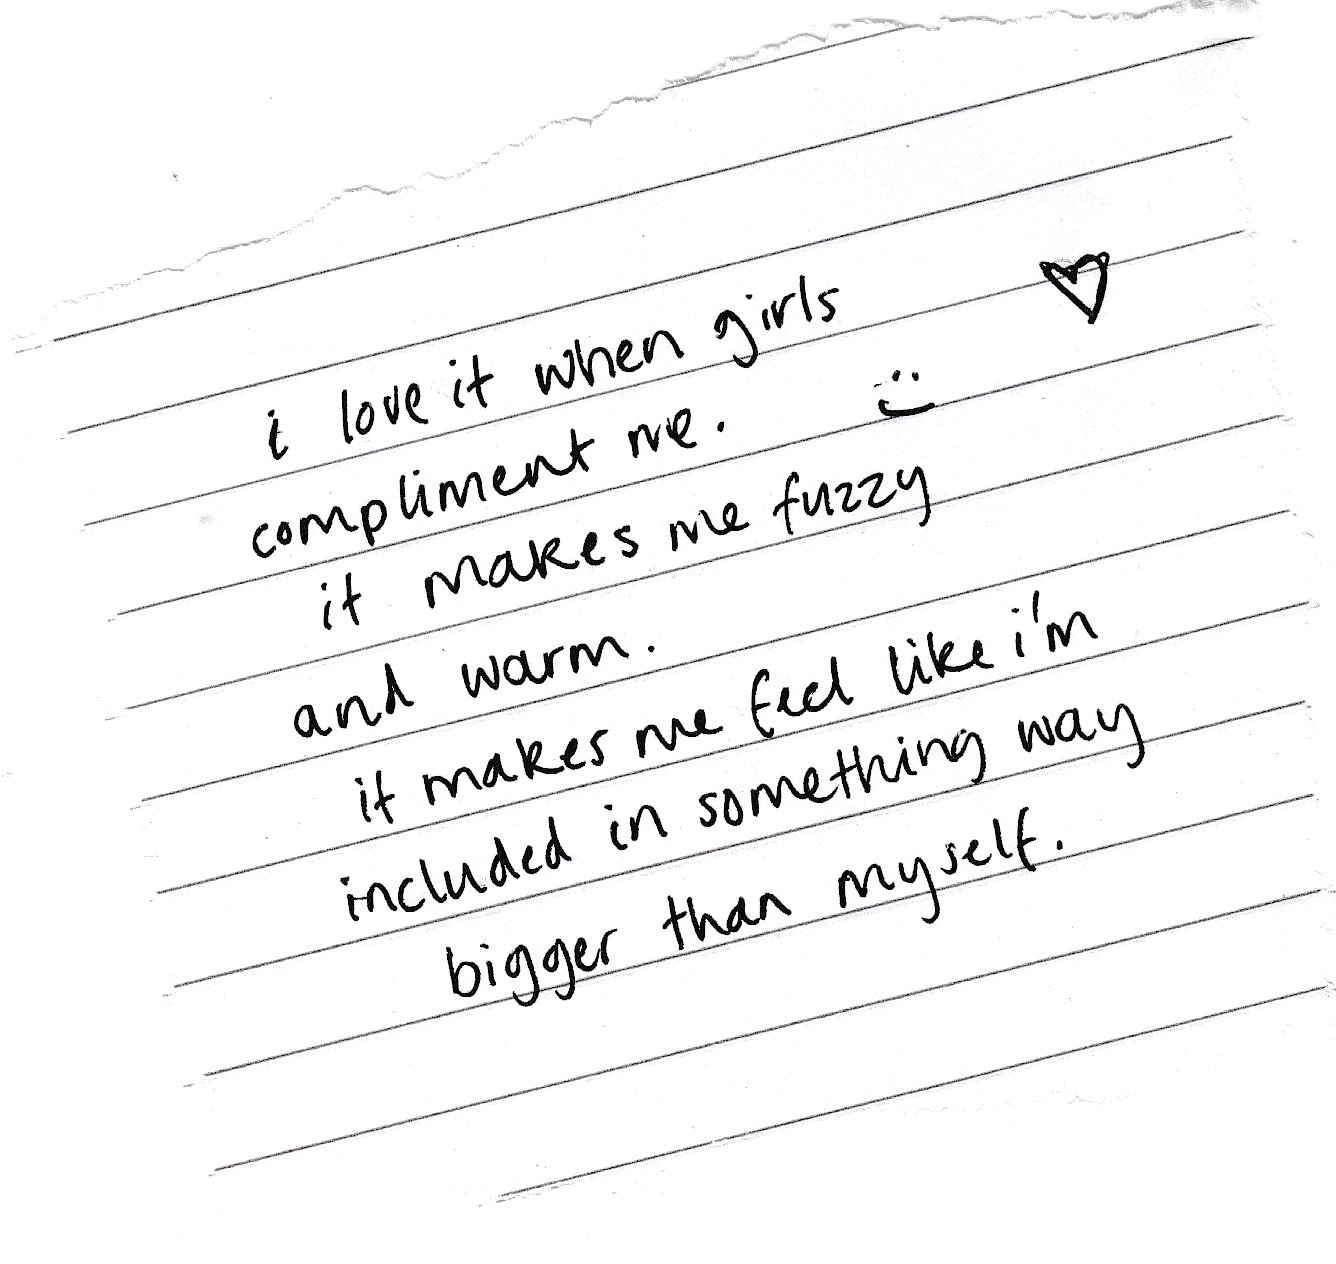 i love it when girls
compliment me.
it makes me fuzzy
and warm.
it makes me feel like i'm
included in something way
bigger than myself.